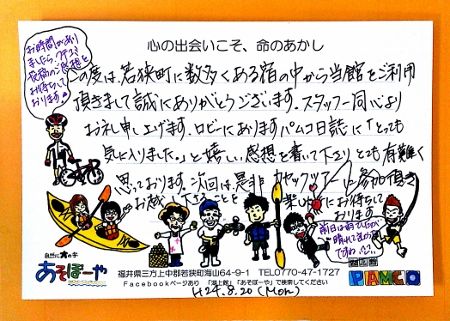 心の出会いこそ、命のあかし
お時間がありましたら、クチコミ投稿のご感想をお待ちしております。
この度は、若狭町に数多くある宿の中から当館をご利用
頂きまして誠にありがとうございます。スタッフ一同心より
お礼申し上げます。ロビーにありますパムコ日誌に「とっても
気に入りました。」と嬉しい感想を書いて下さりとても有難く
思っております。次回は是非カヤックツアーに参加頂き
お越し下さることを楽しみにお待ちして
おります
自然に大の字
あそぼーや
福井県三方上中郡若狭町海山64-9-1 TEL.0770-47-1727
Facebookページあり 「湖上館」「あそぼーや」で検索してください
湖上館
PAMCO
H24.8.20 (Mon)